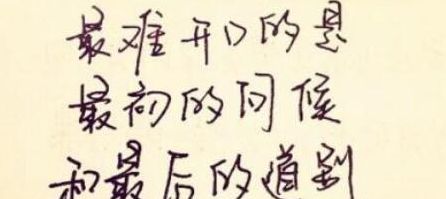 最难开口的是
最初的问候
和最后的道别